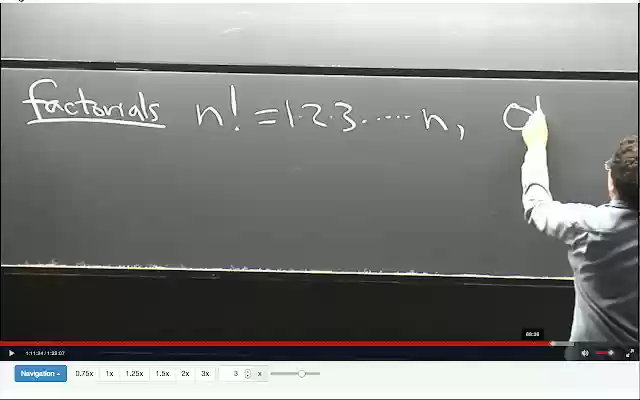 factorials n! = 1·2·3····· n, 0!
1:11:24 / 1:22:07
Navigation 0.75x 1x 1.25x 1.5x 2x 3x 3 x